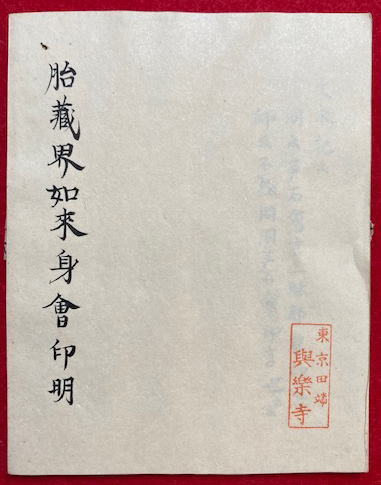 胎藏界如來身會印明
東京田端
與樂寺